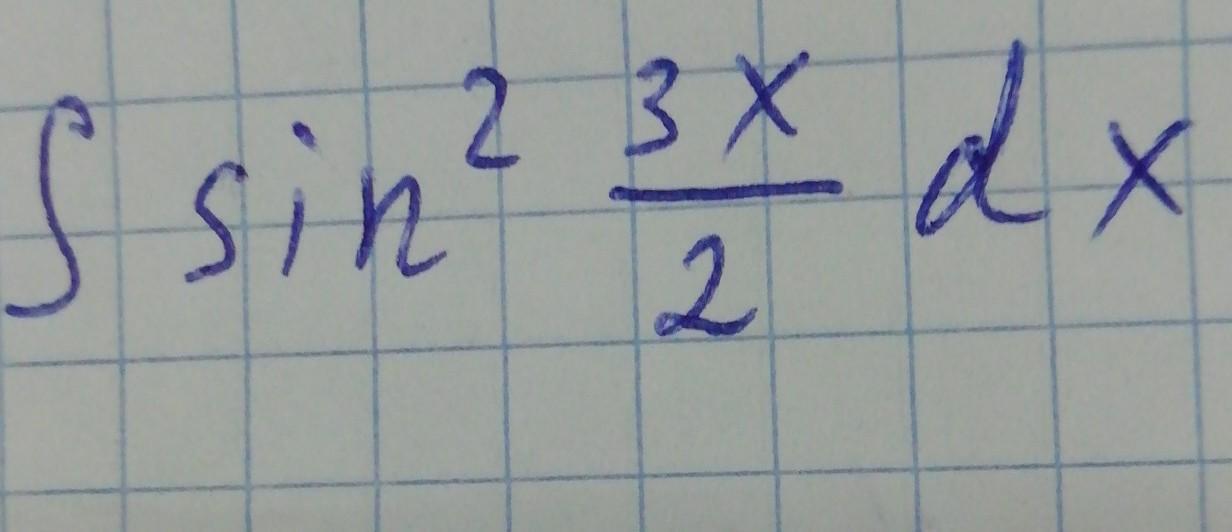 ∫ sin² 3x/2 dx